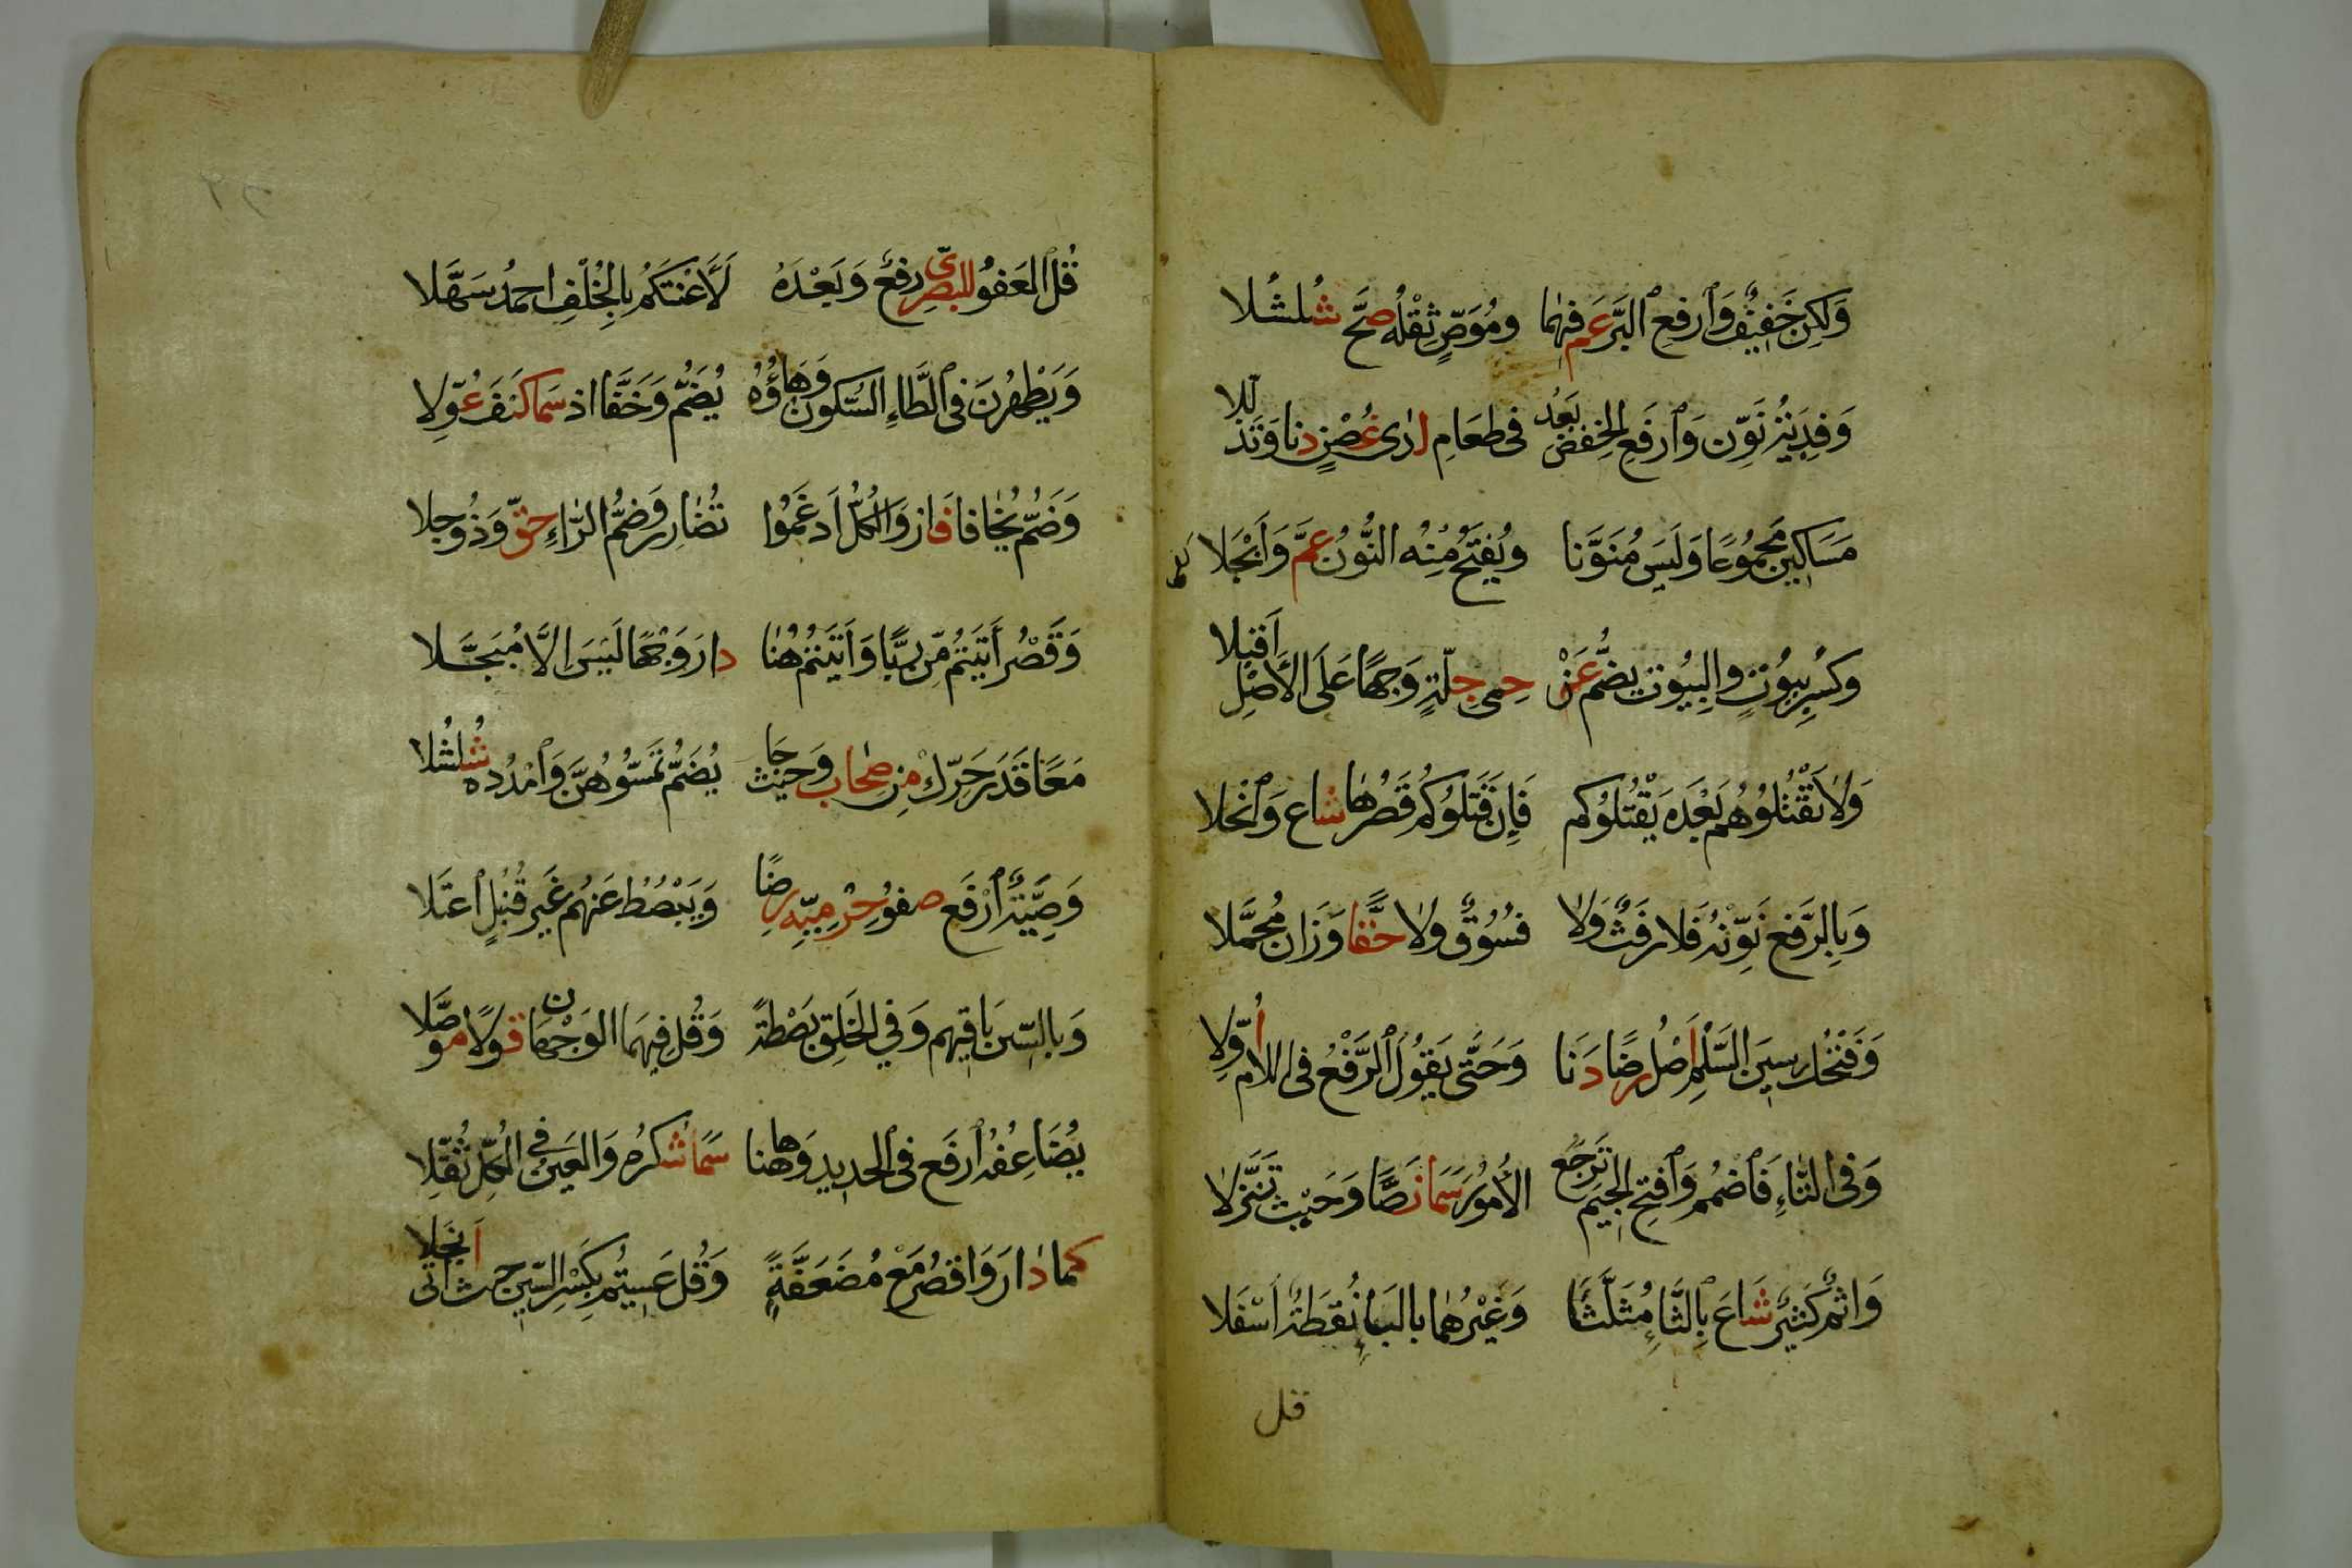 وَلَكِن خَفِيفٌ وَٱرفَعِ ٱلبَرَّ عَمَّ فِيهِمَا وَمُوَصٍّ ثِقْلُهُ صَحَّ شُلشُلا
وَفِديَةُ نَوِّن وَٱرفَعِ الخَفضَ بَعدُ فى طَعَامِ لدى غُصْنٍ دنا وَتَذَلَّلا
مَسَاكِينَ مَجمُوعًا وَلَيسَ مُنَوَّنا وَيُفتَحُ مِنهُ النُّونُ عَمَّ وَأَبْجَلا
وَكَسرُ بُيُوتٍ والبُيُوتَ يضَمُّ عَنْ حِمى جِلَّةٍ وَجهًا عَلَى الأَصْلِ أَقبَلا
وَلاَ تَقْتُلُوهُم بَعْدَه يَقْتُلُوكُم فَإِن قَتَلُوكُم قَصْرُهَا شاع وَٱنْجَلا
وَبِالرَّفعِ نَوِّنهُ فَلا رَفَثٌ وَلا فُسُوقٌ ولا حَقّا وَزَانَ مُجَمَّلا
وَفَتْحُكَ سِينَ السَّلْمِ أَصْلُ رِضًا دَنَا وَحَتَّى يَقُولَ ٱلرَّفْعُ فى اللام أُوِّلا
وَفى التَّاءِ فَٱضْمُم وَٱفتَحِ الجِيمَ تَرجَعُ الأُمُورُ سَمَا نَصًّا وَحَيثُ تَنَزَّلا
وَاثمٌ كَثيرٌ شَاعَ بِالثَّا مُثَلَّثًا وَغَيْرُهُمَا بالبَاءِ نُقطَةٌ أَسْفَلا
قل
قُلِ ٱلعَفوُ للبَصرِىّ رفعٌ وَبَعْدَهُ لَأَعْنَتَكُم بِالخُلْفِ احمَدُ سَهَّلا
وَيَطْهُرنَ فى ٱلطَّاءِ السُّكونُ وَهَاؤُهُ يُضَمُّ وَخَفَّا اذ سَما كَيفَ عُوِّلا
وَضَمُّ يَخَافا فَازَ وَالكُلُّ أَدغَمُوا تُضَارِر وَضَمُّ الرّاءِ حَقٌّ وَذُو جلا
وَقَصْرُ أَتَيتُم مِن رِبًا وَأَتَيْتُمُ هُنا دارَ وَجْهًا لَيسَ الاَّ مُبَجَّلا
مَعًا قَدرُ حَرِّك مِن صحَاب وَحَيثُ جَا يُضَمُّ تَمَسُّوهُنَّ وَٱمْدُده شُلشُلا
وَصِيَّةٌ ٱرفَع صفوُ حِرْمِيِّهِ رِضًا وَيَبْصُطُ عَنهُم غَيرَ قُنبُلٍ ٱعتَلا
وَبالسّين بَاقِيهِم وَفي الخَلقِ بَصْطَةً وَقُل فِيهِمَا الوَجْهَانِ قولاً مُوَصَّلا
يُضَاعِفُهُ ٱرفَع فى ٱلحديدِ وَهاهنا سَمَا شكرُهُ وَالعَينُ في الكُلِّ ثُقِّلا
كَما دارَ وَاقصُر مَعْ مُضَعَّفَةٍ وَقُل عَسِيتُم بِكَسرِ السّين حيث اتى انجلا